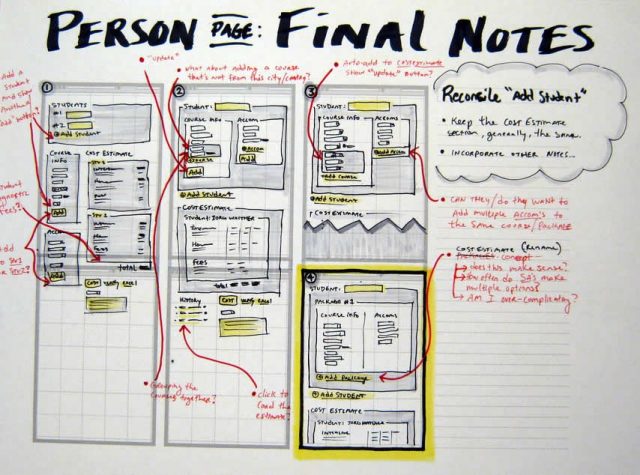 PERSON PAGE: FINAL NOTES
ADD A
STUDENT
AND SHOW
ANOTHER
"ADD" BUTTON?
"UPDATE"
WHAT ABOUT ADDING A COURSE
THAT'S NOT FROM THIS CITY/
AUTO-ADD TO COST ESTIMATE
SHOW "UPDATE" BUTTON?
1
STUDENTS
#1
#2
+ ADD STUDENT
COURSE
INFO
COST ESTIMATE
STU 1
ADD
STU 2
ADD
TOTAL
COST
EXCEL
STUDENT
FEES?
2
STUDENT:
COURSE INFO
ACCOM
+ COURSE
ADD
+ ACCOM
ADD
+ ADD STUDENT
COST ESTIMATE
FEES
TOTAL
HISTORY
COST
EXCEL
GROUPING THE
TOGETHER?
CLICK TO
LOAD THE
ESTIMATE?
3
STUDENT:
COURSE INFO
ACCOMS
+ ADD COURSE
+ ADD ACCOM
+ ADD STUDENT
COST ESTIMATE
4
STUDENT:
PACKAGE #1
COURSE INFO
ACCOMS
+ ADD PACKAGE
+ ADD STUDENT
COST ESTIMATE
Reconsile "Add Student"
• KEEP THE COST ESTIMATE
SECTION, GENERALLY, THE SAME.
• INCORPORATE OTHER NOTES...
• CAN THEY/DO THEY WANT TO
ADD MULTIPLE ACCOM'S TO
THE SAME COURSE/PACKAGE
COST ESTIMATE (RENAME)
CONCEPT
DOES THIS MAKE SENSE?
HOW OFTEN DO SA'S MAKE
MULTIPLE OPTIONS
AM I OVER-COMPLICATING?